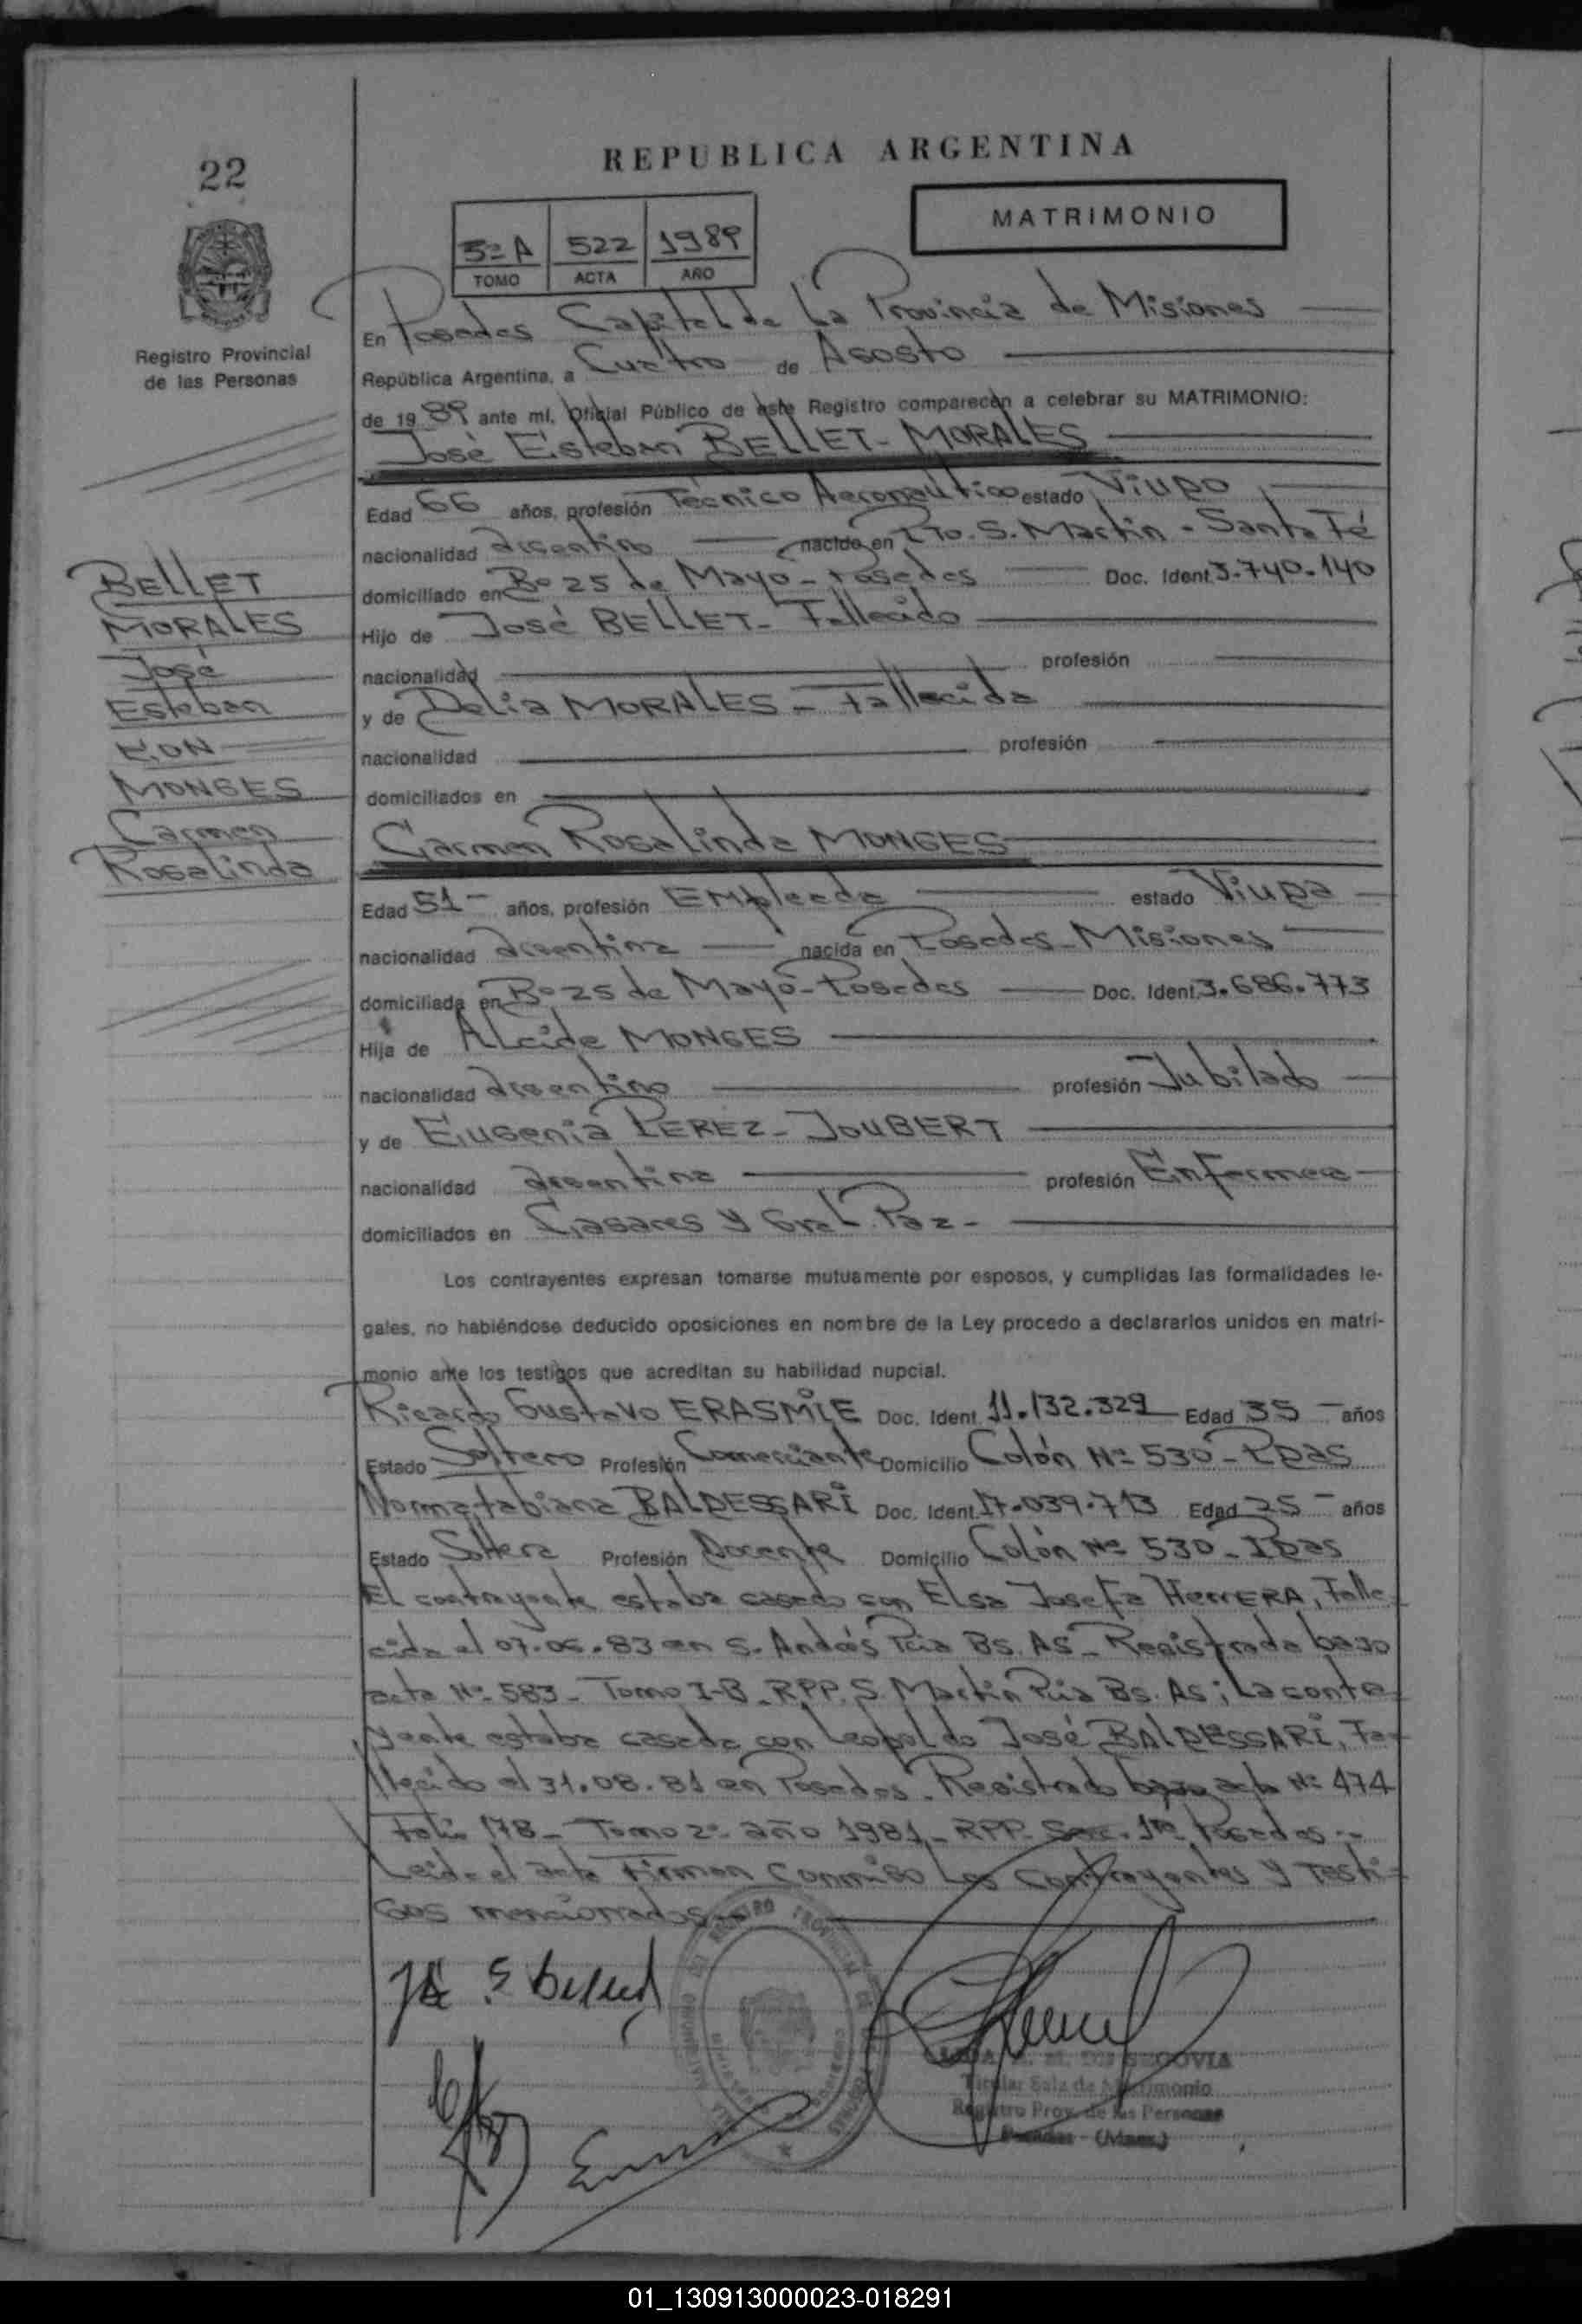 22
REPUBLICA ARGENTINA
MATRIMONIO
5º A 522 1989
TOMO ACTA AÑO
Registro Provincial
de las Personas
En Posadas Capital de La Provincia de Misiones
República Argentina, a Cuatro de Agosto
de 1989 ante mí, Oficial Público de este Registro comparecen a celebrar su MATRIMONIO:
José Esteban BELLET-MORALES
Edad 66 años, profesión Técnico Aeronautico estado Viudo
nacionalidad argentino nacido en Pto. S. Martin - Santa Fé
domiciliado en Bº 25 de Mayo - Posadas Doc. Ident. 3.740.140
Hijo de José BELLET - Fallecido
nacionalidad profesión
y de Delia MORALES - Fallecida
nacionalidad profesión
domiciliados en
BELLET
MORALES
José
Esteban
CON
MONGES
Carmen
Rosalinda
Carmen Rosalinda MONGES
Edad 51 - años, profesión Empleada estado Viuda
nacionalidad argentina nacida en Posadas - Misiones
domiciliada en Bº 25 de Mayo - Posadas Doc. Ident. 3.686.773
Hija de Alcide MONGES
nacionalidad argentino profesión Jubilado
y de Eugenia PEREZ - JOUBERT
nacionalidad argentina profesión Enfermera
domiciliados en Casares y Gral. Paz -
Los contrayentes expresan tomarse mutuamente por esposos, y cumplidas las formalidades le-
gales, no habiéndose deducido oposiciones en nombre de la Ley procedo a declararlos unidos en matri-
monio ante los testigos que acreditan su habilidad nupcial.
Ricardo Gustavo ERASMIE Doc. Ident. 11.132.329 Edad 35 - años
Estado Soltero Profesión Comerciante Domicilio Colón Nº 530 - Pdas
Norma Fabiana BALDESSARI Doc. Ident. 17.039.713 Edad 25 - años
Estado Soltera Profesión Docente Domicilio Colón Nº 530 - Pdas
El contrayente estaba casado con Elsa Josefa HERRERA, Falle-
cida el 07.06.83 en S. Andrés Pcia Bs. As - Registrada bajo
acta Nº 583 - Tomo I-B - RPP. S. Martin Pcia Bs. As; La contra-
yente estaba casada con Leopoldo José BALDESSARI, Fa-
llecido el 31.08.81 en Posadas. Registrado bajo acta Nº 474
Folio 178 - Tomo 2º año 1981 - RPP. Secc. 1ra Posadas.-
Leida el acta Firman Conmigo Los Contrayentes y Testi-
gos mencionados
SEGOVIA
Titular Sala de Matrimonio
Registro Prov. de las Personas
Posadas - (Mnes.)
01_130913000023-018291